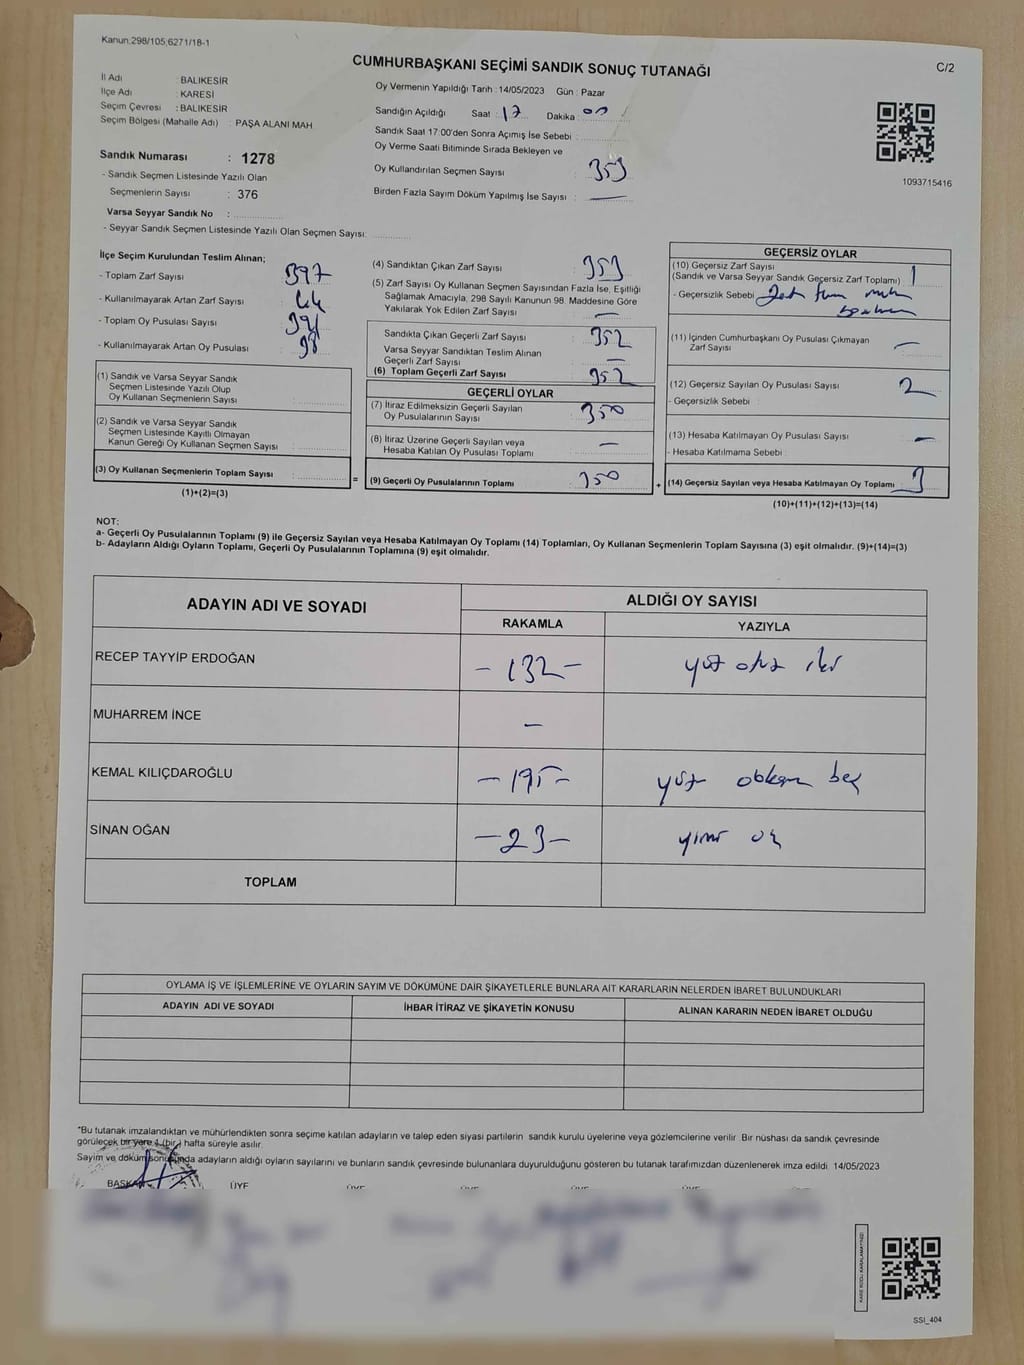 Kanun:298/105;6271/18-1
CUMHURBAŞKANI SEÇİMİ SANDIK SONUÇ TUTANAĞI
C/2
İl Adı : BALIKESİR
İlçe Adı : KARESİ
Seçim Çevresi : BALIKESİR
Seçim Bölgesi (Mahalle Adı) : PAŞA ALANI MAH
Sandık Numarası : 1278
- Sandık Seçmen Listesinde Yazılı Olan
Seçmenlerin Sayısı : 376
Varsa Seyyar Sandık No :
- Seyyar Sandık Seçmen Listesinde Yazılı Olan Seçmen Sayısı:
Oy Vermenin Yapıldığı Tarih : 14/05/2023 Gün : Pazar
Sandığın Açıldığı Saat : 17 Dakika : 00
Sandık Saat 17:00'den Sonra Açımış İse Sebebi :
Oy Verme Saati Bitiminde Sırada Bekleyen ve
Oy Kullandırılan Seçmen Sayısı : 353
Birden Fazla Sayım Döküm Yapılmış İse Sayısı : —
1093715416
İlçe Seçim Kurulundan Teslim Alınan;
- Toplam Zarf Sayısı : 397
- Kullanılmayarak Artan Zarf Sayısı : 44
- Toplam Oy Pusulası Sayısı :
- Kullanılmayarak Artan Oy Pusulası :
(1) Sandık ve Varsa Seyyar Sandık
Seçmen Listesinde Yazılı Olup
Oy Kullanan Seçmenlerin Sayısı :
(2) Sandık ve Varsa Seyyar Sandık
Seçmen Listesinde Kayıtlı Olmayan
Kanun Gereği Oy Kullanan Seçmen Sayısı :
(3) Oy Kullanan Seçmenlerin Toplam Sayısı :
(1)+(2)=(3)
=
(4) Sandıktan Çıkan Zarf Sayısı : 353
(5) Zarf Sayısı Oy Kullanan Seçmen Sayısından Fazla İse, Eşitliği
Sağlamak Amacıyla, 298 Sayılı Kanunun 98. Maddesine Göre
Yakılarak Yok Edilen Zarf Sayısı : —
Sandıkta Çıkan Geçerli Zarf Sayısı : 352
Varsa Seyyar Sandıktan Teslim Alınan
Geçerli Zarf Sayısı : —
(6) Toplam Geçerli Zarf Sayısı : 352
GEÇERLİ OYLAR
(7) İtiraz Edilmeksizin Geçerli Sayılan
Oy Pusulalarının Sayısı : 350
(8) İtiraz Üzerine Geçerli Sayılan veya
Hesaba Katılan Oy Pusulası Toplamı : —
(9) Geçerli Oy Pusulalarının Toplamı : 350
+
GEÇERSİZ OYLAR
(10) Geçersiz Zarf Sayısı
(Sandık ve Varsa Seyyar Sandık Geçersiz Zarf Toplamı) : 1
- Geçersizlik Sebebi :
(11) İçinden Cumhurbaşkanı Oy Pusulası Çıkmayan
Zarf Sayısı : —
(12) Geçersiz Sayılan Oy Pusulası Sayısı : 2
- Geçersizlik Sebebi :
(13) Hesaba Katılmayan Oy Pusulası Sayısı : —
- Hesaba Katılmama Sebebi :
(14) Geçersiz Sayılan veya Hesaba Katılmayan Oy Toplamı : 3
(10)+(11)+(12)+(13)=(14)
NOT:
a- Geçerli Oy Pusulalarının Toplamı (9) ile Geçersiz Sayılan veya Hesaba Katılmayan Oy Toplamı (14) Toplamları, Oy Kullanan Seçmenlerin Toplam Sayısına (3) eşit olmalıdır. (9)+(14)=(3)
b- Adayların Aldığı Oyların Toplamı, Geçerli Oy Pusulalarının Toplamına (9) eşit olmalıdır.
ADAYIN ADI VE SOYADI
ALDIĞI OY SAYISI
RAKAMLA YAZIYLA
RECEP TAYYİP ERDOĞAN -132- yüz otuz iki
MUHARREM İNCE —
KEMAL KILIÇDAROĞLU -195- yüz doksan beş
SİNAN OĞAN -23- yirmi üç
TOPLAM
OYLAMA İŞ VE İŞLEMLERİNE VE OYLARIN SAYIM VE DÖKÜMÜNE DAİR ŞİKAYETLERLE BUNLARA AİT KARARLARIN NELERDEN İBARET BULUNDUKLARI
ADAYIN ADI VE SOYADI İHBAR İTİRAZ VE ŞİKAYETİN KONUSU ALINAN KARARIN NEDEN İBARET OLDUĞU
*Bu tutanak imzalandıktan ve mühürlendikten sonra seçime katılan adayların ve talep eden siyasi partilerin sandık kurulu üyelerine veya gözlemcilerine verilir. Bir nüshası da sandık çevresinde
görülecek bir yere 1 (bir) hafta süreyle asılır.
Sayım ve döküm sonucunda adayların aldığı oyların sayılarını ve bunların sandık çevresinde bulunanlara duyurulduğunu gösteren bu tutanak tarafımızdan düzenlenerek imza edildi. 14/05/2023
BAŞKAN ÜYE ÜYE ÜYE ÜYE ÜYE
KARE KODU KARALAMAYINIZ!
SSI_404